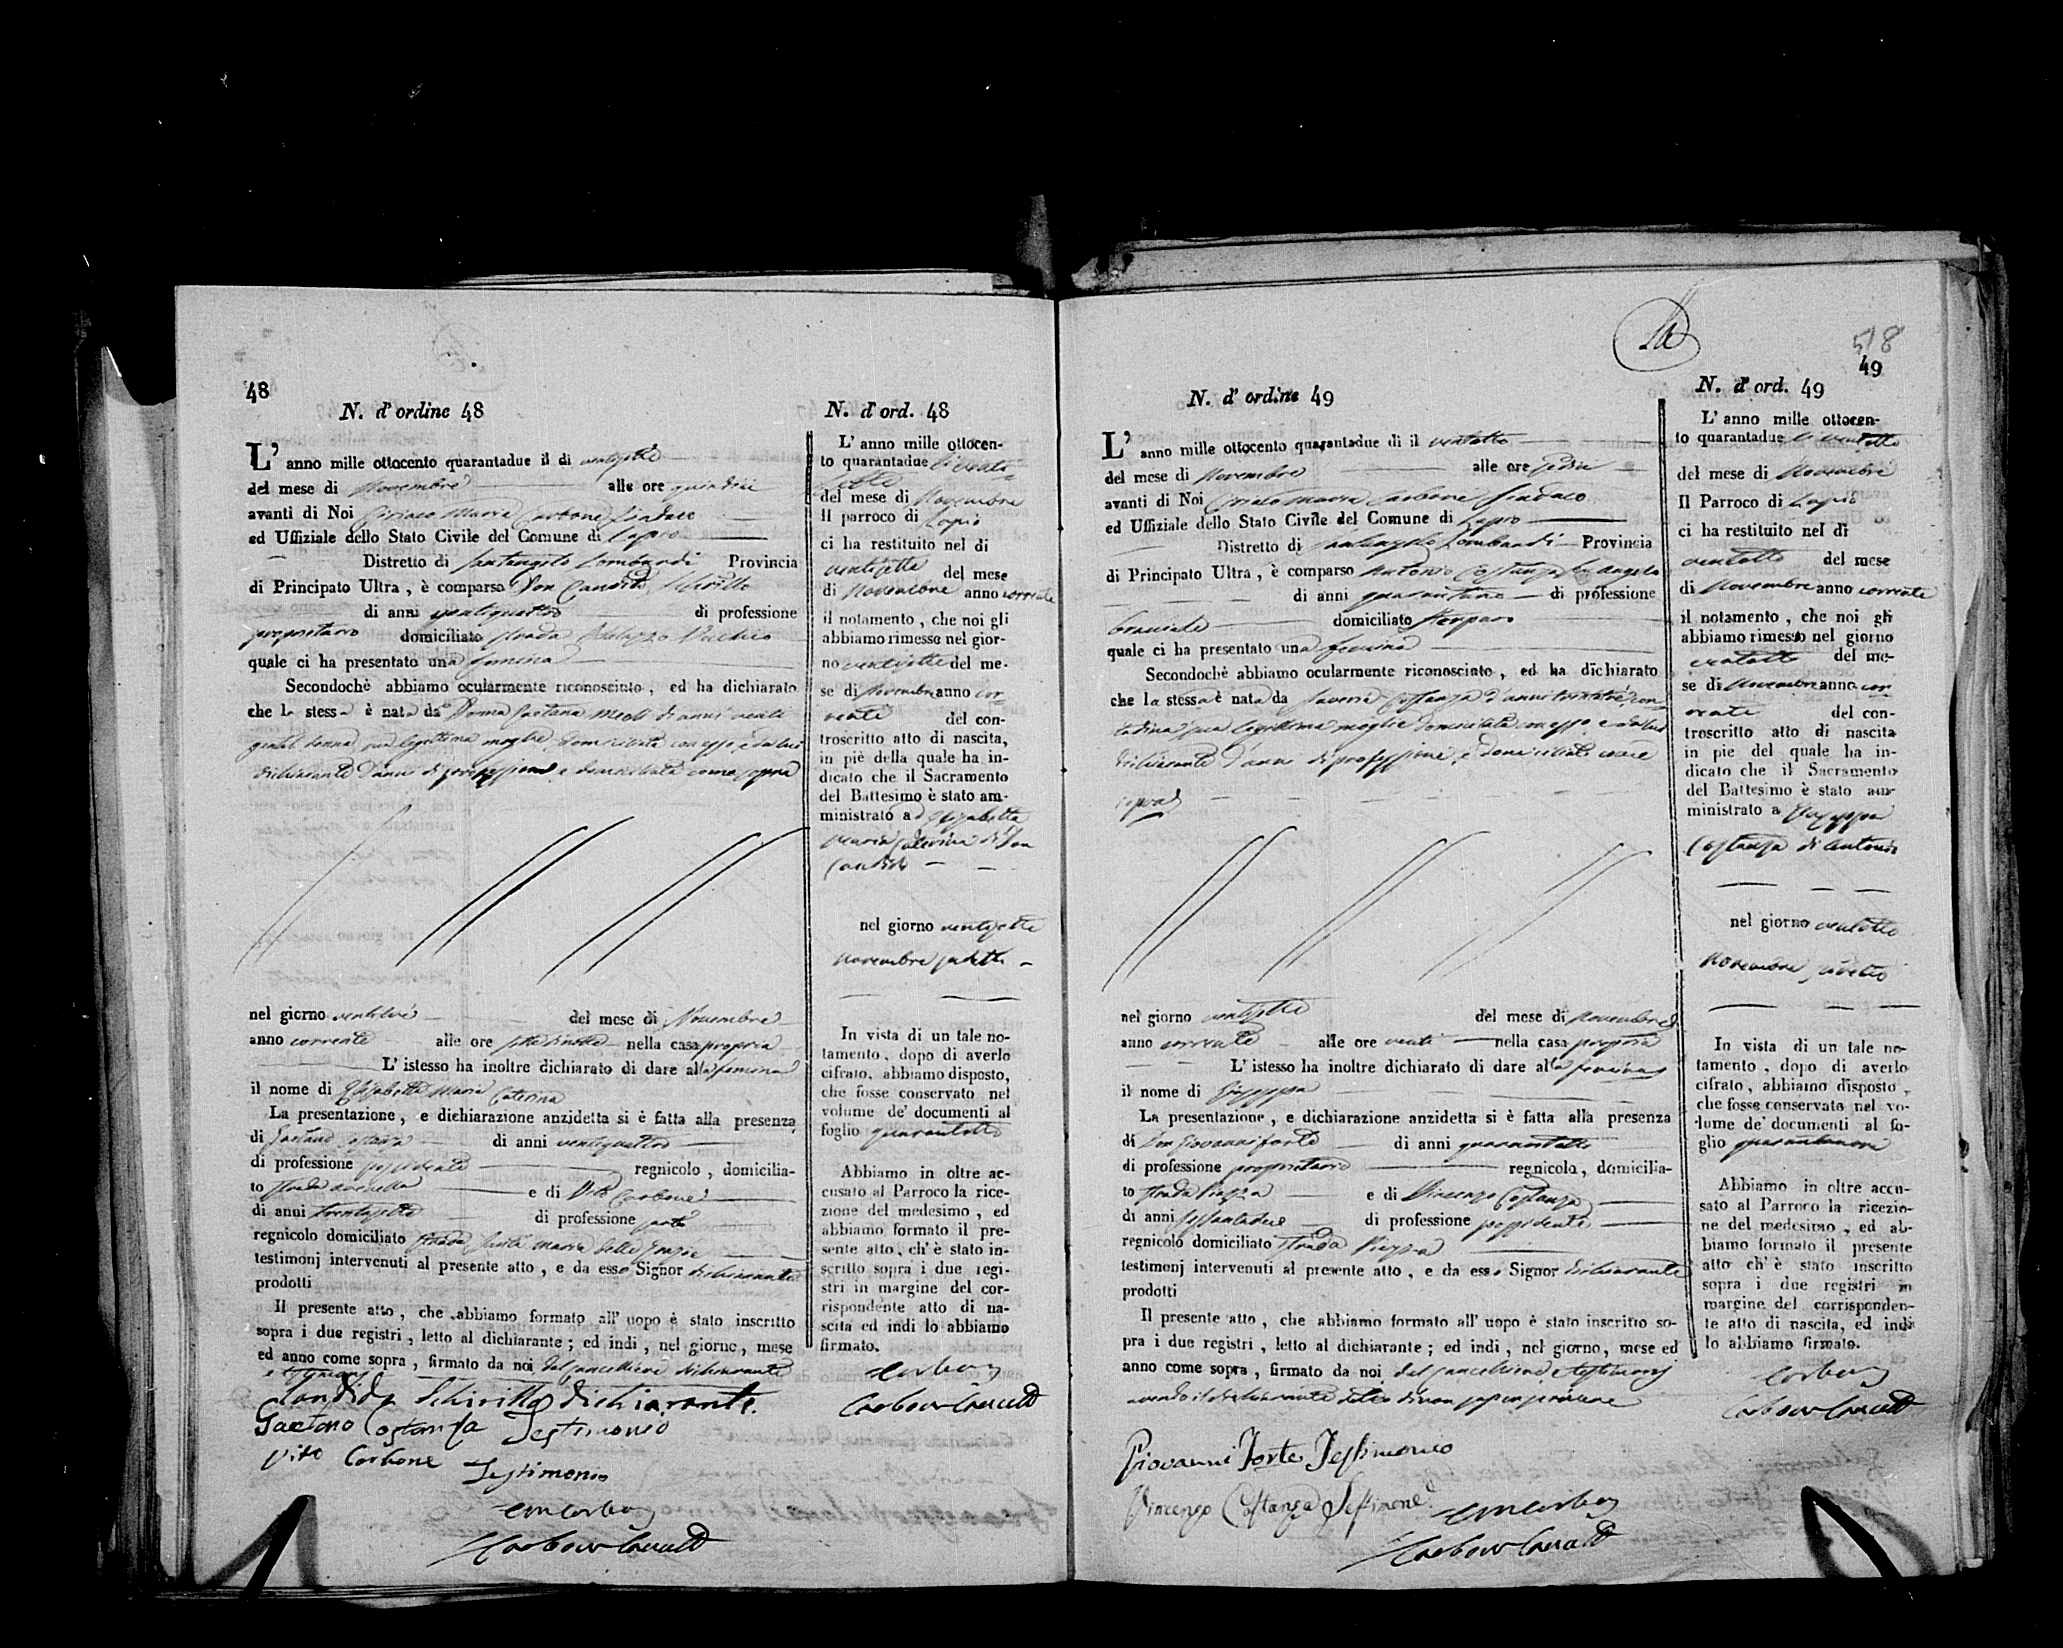 48
N. d' ordine 48
L' anno mille ottocento quarantadue il di ventisette
del mese di Novembre alle ore quindici
avanti di Noi Ciriaco Maria Carbone Sindaco
ed Uffiziale dello Stato Civile del Comune di Lapio
Distretto di Santangelo Lombardi Provincia
di Principato Ultra , è comparso Don Candido Schirillo
di anni ventiquattro di professione
proprietario domiciliato strada Palazzo Vecchio
quale ci ha presentato una femina
Secondochè abbiamo ocularmente riconosciuto , ed ha dichiarato
che la stessa è nata da Donna Gaetana Meoli di anni venti
gentil donna sua legittima moglie domiciliata con esso e da lui
dichiarante d'anni di professione e domiciliato come sopra
nel giorno ventisei del mese di Novembre
anno corrente alle ore nella casa propria
L' istesso ha inoltre dichiarato di dare alla femina
il nome di Elisabetta Maria Caterina
La presentazione , e dichiarazione anzidetta si è fatta alla presenza
di Gaetano Costanza di anni ventiquattro
di professione possidente regnicolo , domicilia-
to strada e di Vito Carbone
di anni trentasette di professione
regnicolo domiciliato strada Santa Maria delle Grazie
testimonj intervenuti al presente atto , e da esso Signor dichiarante
prodotti
Il presente atto , che abbiamo formato all' uopo è stato inscritto
sopra i due registri , letto al dichiarante ; ed indi , nel giorno , mese
ed anno come sopra , firmato da noi dal cancelliere dichiarante
e testimonj
Candido Schirillo dichiarante.
Gaetano Costanza Testimonio
Vito Carbone Testimonio
CMCarbone
Carbone Cancell
N. d' ord. 48
L' anno mille ottocen-
to quarantadue li venti
sette
del mese di Novembre
Il parroco di Lapio
ci ha restituito nel di
ventisette del mese
di Novembre anno corrente
il notamento , che noi gli
abbiamo rimesso nel gior-
no ventisette del me-
se di Novembre anno cor
rente del con-
troscritto atto di nascita,
in piè della quale ha in-
dicato che il Sacramento
del Battesimo è stato am-
ministrato a Elisabetta
Maria Caterina di Don
Candido
nel giorno ventisette
novembre suddetto
In vista di un tale no-
tamento , dopo di averlo
cifrato, abbiamo disposto,
che fosse conservato nel
volume de' documenti al
foglio quarantotto
Abbiamo in oltre ac-
cusato al Parroco la rice-
zione del medesimo , ed
abbiamo formato il pre-
sente atto , ch' è stato in-
scritto sopra i due regi-
stri in margine del cor-
rispondente atto di na-
scita ed indi lo abbiamo
firmato.
Carbone
Carbone Cancell
518
49
N. d' ordine 49
L' anno mille ottocento quarantadue di il ventotto
del mese di Novembre alle ore sedici
avanti di Noi Ciriaco Maria Carbone Sindaco
ed Uffiziale dello Stato Civile del Comune di Lapio
Distretto di Santangelo Lombardi Provincia
di Principato Ultra , è comparso Antonio Costanza fu Angelo
di anni di professione
bracciale domiciliato
quale ci ha presentato una femina
Secondochè abbiamo ocularmente riconosciuto , ed ha dichiarato
che la stessa è nata da Saveria Costanza d'anni trentatre con
tadina sua legittima moglie domiciliata con esso e da lui
dichiarante d'anni di professione, e domiciliato come
sopra
nel giorno ventisette del mese di Novembre
anno corrente alle ore venti nella casa propria
L' istesso ha inoltre dichiarato di dare alla femina
il nome di Giuseppa
La presentazione , e dichiarazione anzidetta si è fatta alla presenza
di Don Giovanni Forte di anni quarantotto
di professione proprietario regnicolo , domicilia-
to strada Piazza e di Vincenzo Costanza
di anni sessantadue di professione possidente
regnicolo domiciliato strada Piazza
testimonj intervenuti al presente atto , e da esso Signor dichiarante
prodotti
Il presente atto , che abbiamo formato all' uopo è stato inscritto so-
pra i due registri , letto al dichiarante ; ed indi , nel giorno, mese ed
anno come sopra , firmato da noi dal cancelliere e testimonj
avendo il dichiarante detto di non saper scrivere
Giovanni Forte Testimonio
Vincenzo Costanza Testimone
CMCarbone
Carbone Cancell
N. d' ord. 49
L' anno mille ottocen-
to quarantadue li ventotto
del mese di Novembre
Il Parroco di Lapio
ci ha restituito nel di
ventotto del mese
di Novembre anno corrente
il notamento , che noi gli
abbiamo rimesso nel giorno
ventotto del me-
se di Novembre anno cor
rente del con-
troscritto atto di nascita
in pie del quale ha in-
dicato che il Sacramento
del Battesimo è stato am-
ministrato a Giuseppa
Costanza di Antonio
nel giorno ventotto
Novembre suddetto
In vista di un tale no-
tamento , dopo di averlo
cifrato , abbiamo disposto ,
che fosse conservato nel vo-
lume de' documenti al fo-
glio quarantanove
Abbiamo in oltre accu-
sato al Parroco la ricezio-
ne del medesimo , ed ab-
biamo formato il presente
atto ch' è stato inscritto
sopra i due registri in
margine del corrisponden-
te atto di nascita, ed indi
lo abbiamo firmato.
Carbone
Carbone Cancell